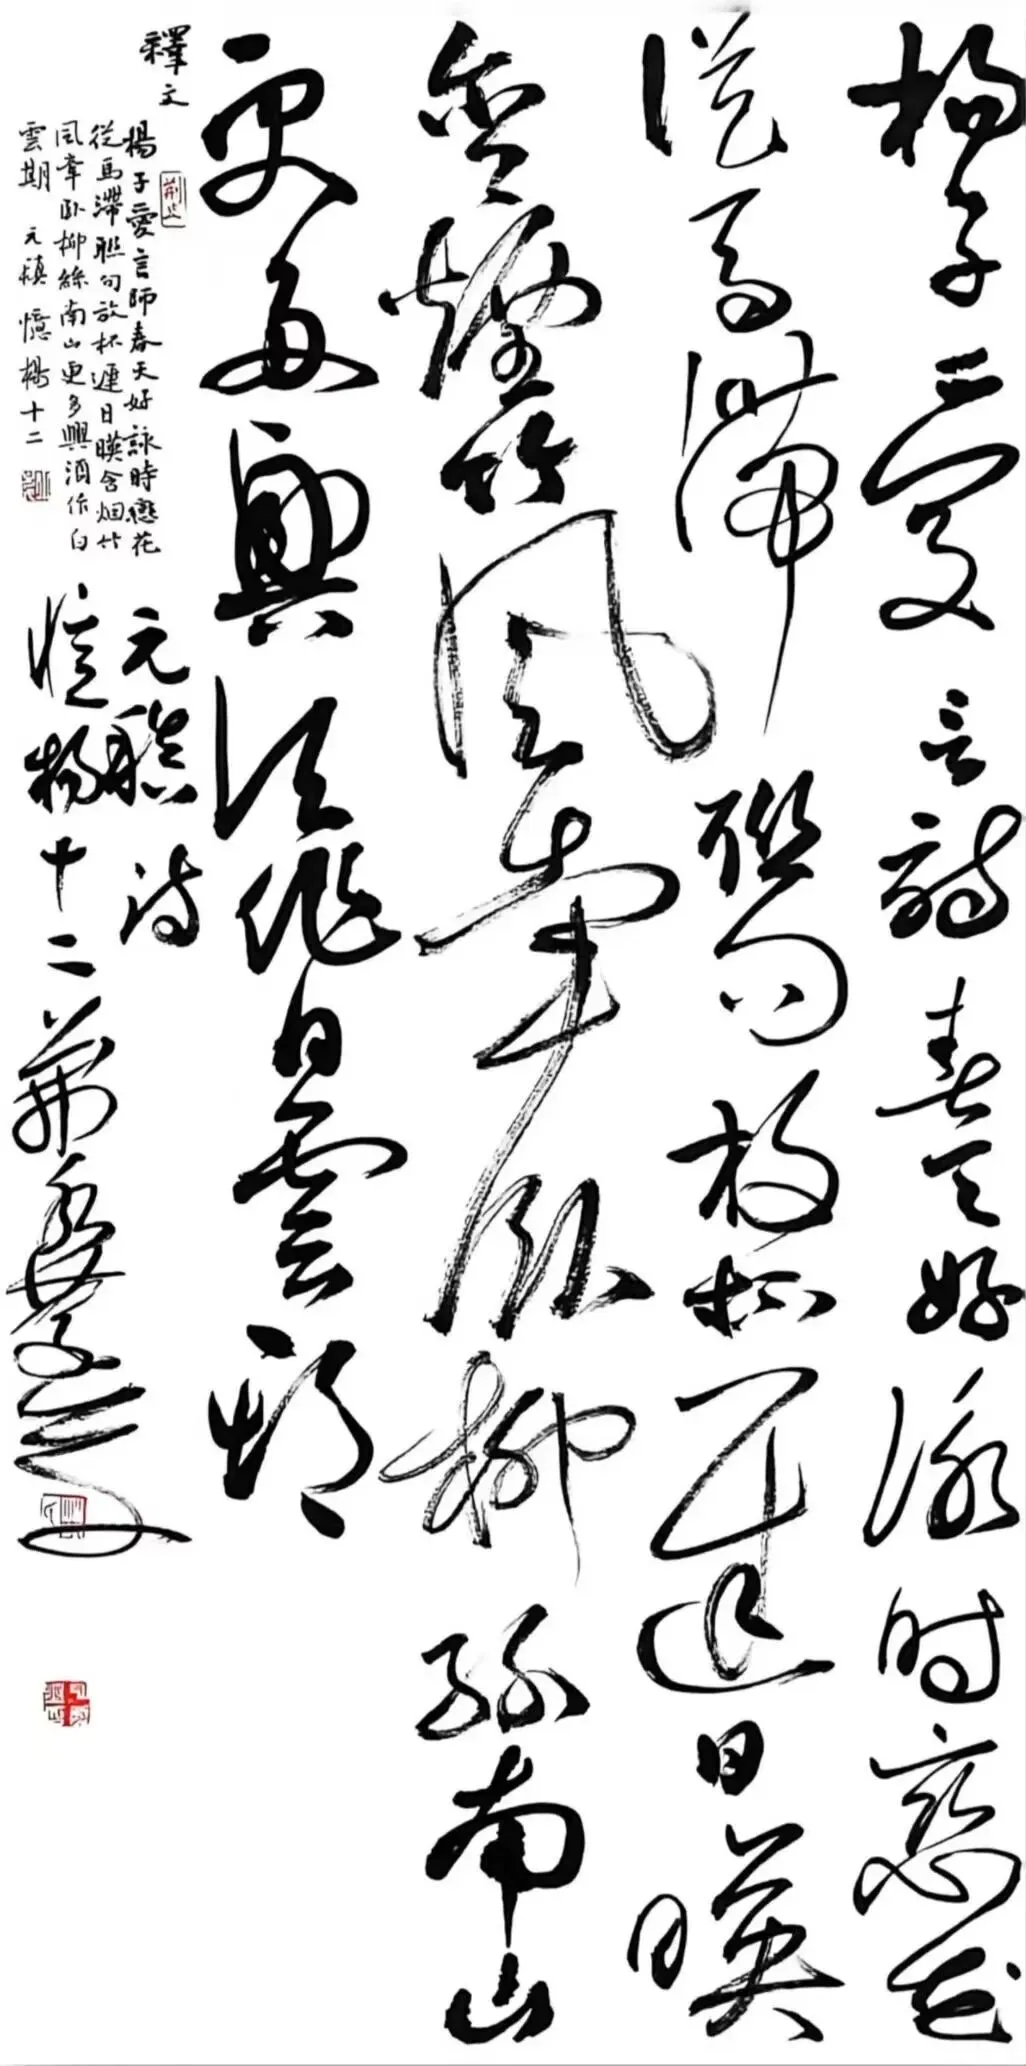 楊子愛言詩春天好詠時戀花
從馬滯聯句放杯遲日暎
含煙竹風牽臥柳絲南山
更多興須作白雲期
元稹詩
憶楊十二
釋文
楊子愛言師春天好詠時戀花
從馬滯聯句放杯遲日暎含烟竹
風牽臥柳絲南山更多興酒作白
雲期 元稹 憶楊十二